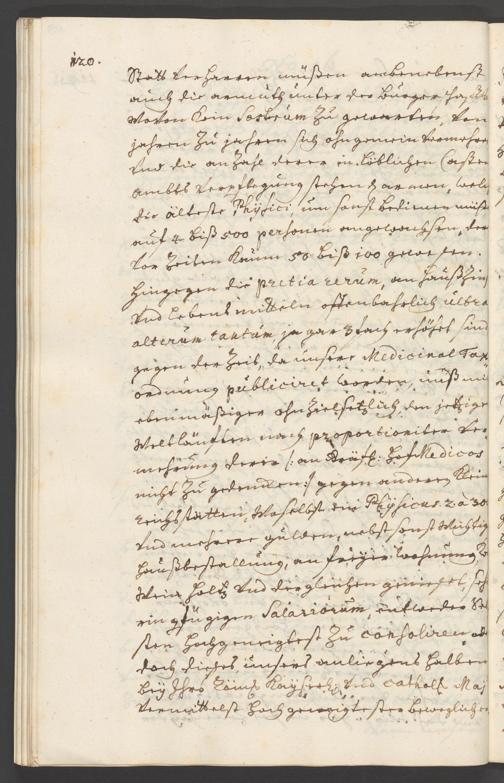 120.
Statt verharren müßen ambenebenst
auch die armuth unter der Burgerschafft
wovon kein Sostrum zu gewarten, von
jahren zu jahren sich ohngemein vermehre
und die anzahl derer in löblichen Casten
ambts verpflegung stehenden armen, welc
die älteste Physici umsonst bedienen müß
auf 4 biß 500 personen angewachsen, der
vor Zeiten kaum 50 biß 100 gewesen.
Hingegen die pretia rerum, an Haußzinß
und Lebens mitteln offenbahrlich ultra
alterum tantum ja gar 3fach erhöhet sind
gegen der Zeit, da unsere Medicinal Tax
ordnung publiciret worden, muß mi
ebenmäßiger ohnzielsetzlich den jetzige
Weltläufften nach proportionirter ver
mehrung derer (: an Medicos
nicht zu gedencken :) gegen anderen klein
reichsstätten, woselbst ein Physicus 2 à 30
und mehrere gulden, nebst sonst wichtig
Haußbestallung, an freyer wohnung
Wein, Holtz und dergleichen genießet, so
ein gfügigen Salariorum, entweder
sten Hochgeneigtest zu consoliren od
doch dießes unsers anliegens halben
bey Ihro Kayserl. und Cathol. Maj
vermittelst Hochgeneigtester beweglicher